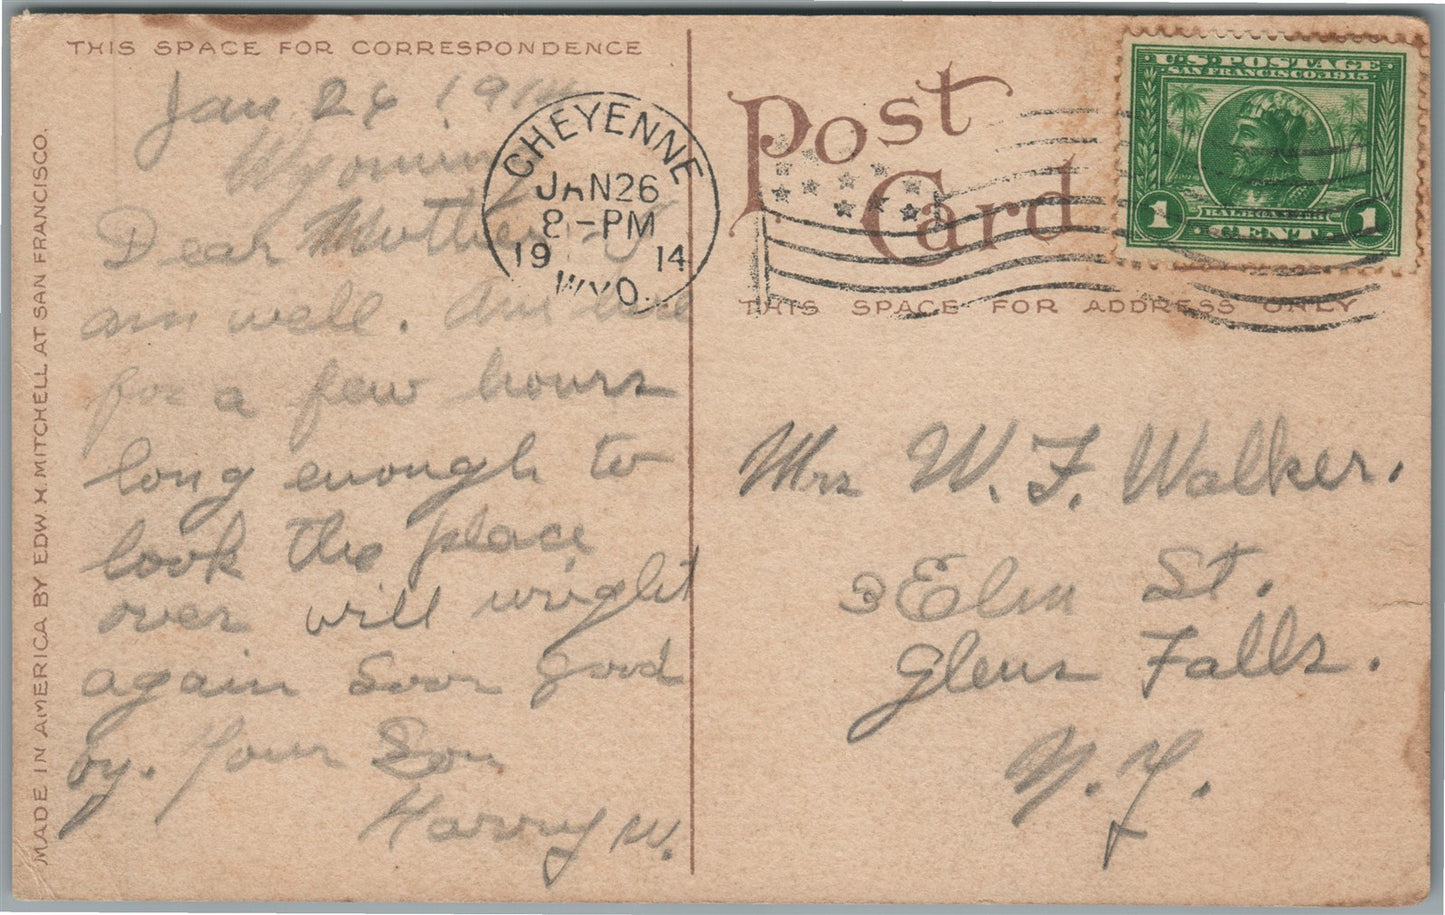 THIS SPACE FOR CORRESPONDENCE
Jan 26 1914
Wyoming
Dear Mother I
am well. Am here
for a few hours
long enough to
look the place
over will wright
again Soon good
by. Your Son
Harry W.
MADE IN AMERICA BY EDW. H. MITCHELL AT SAN FRANCISCO.
CHEYENNE
JAN 26
8-PM
19 14
WYO.
Post
Card
THIS SPACE FOR ADDRESS ONLY
U.S. POSTAGE
SAN FRANCISCO 1915
BALBOA 1513
1 CENT 1
Mrs W. F. Walker.
3 Elm St.
Glens Falls.
N. Y.